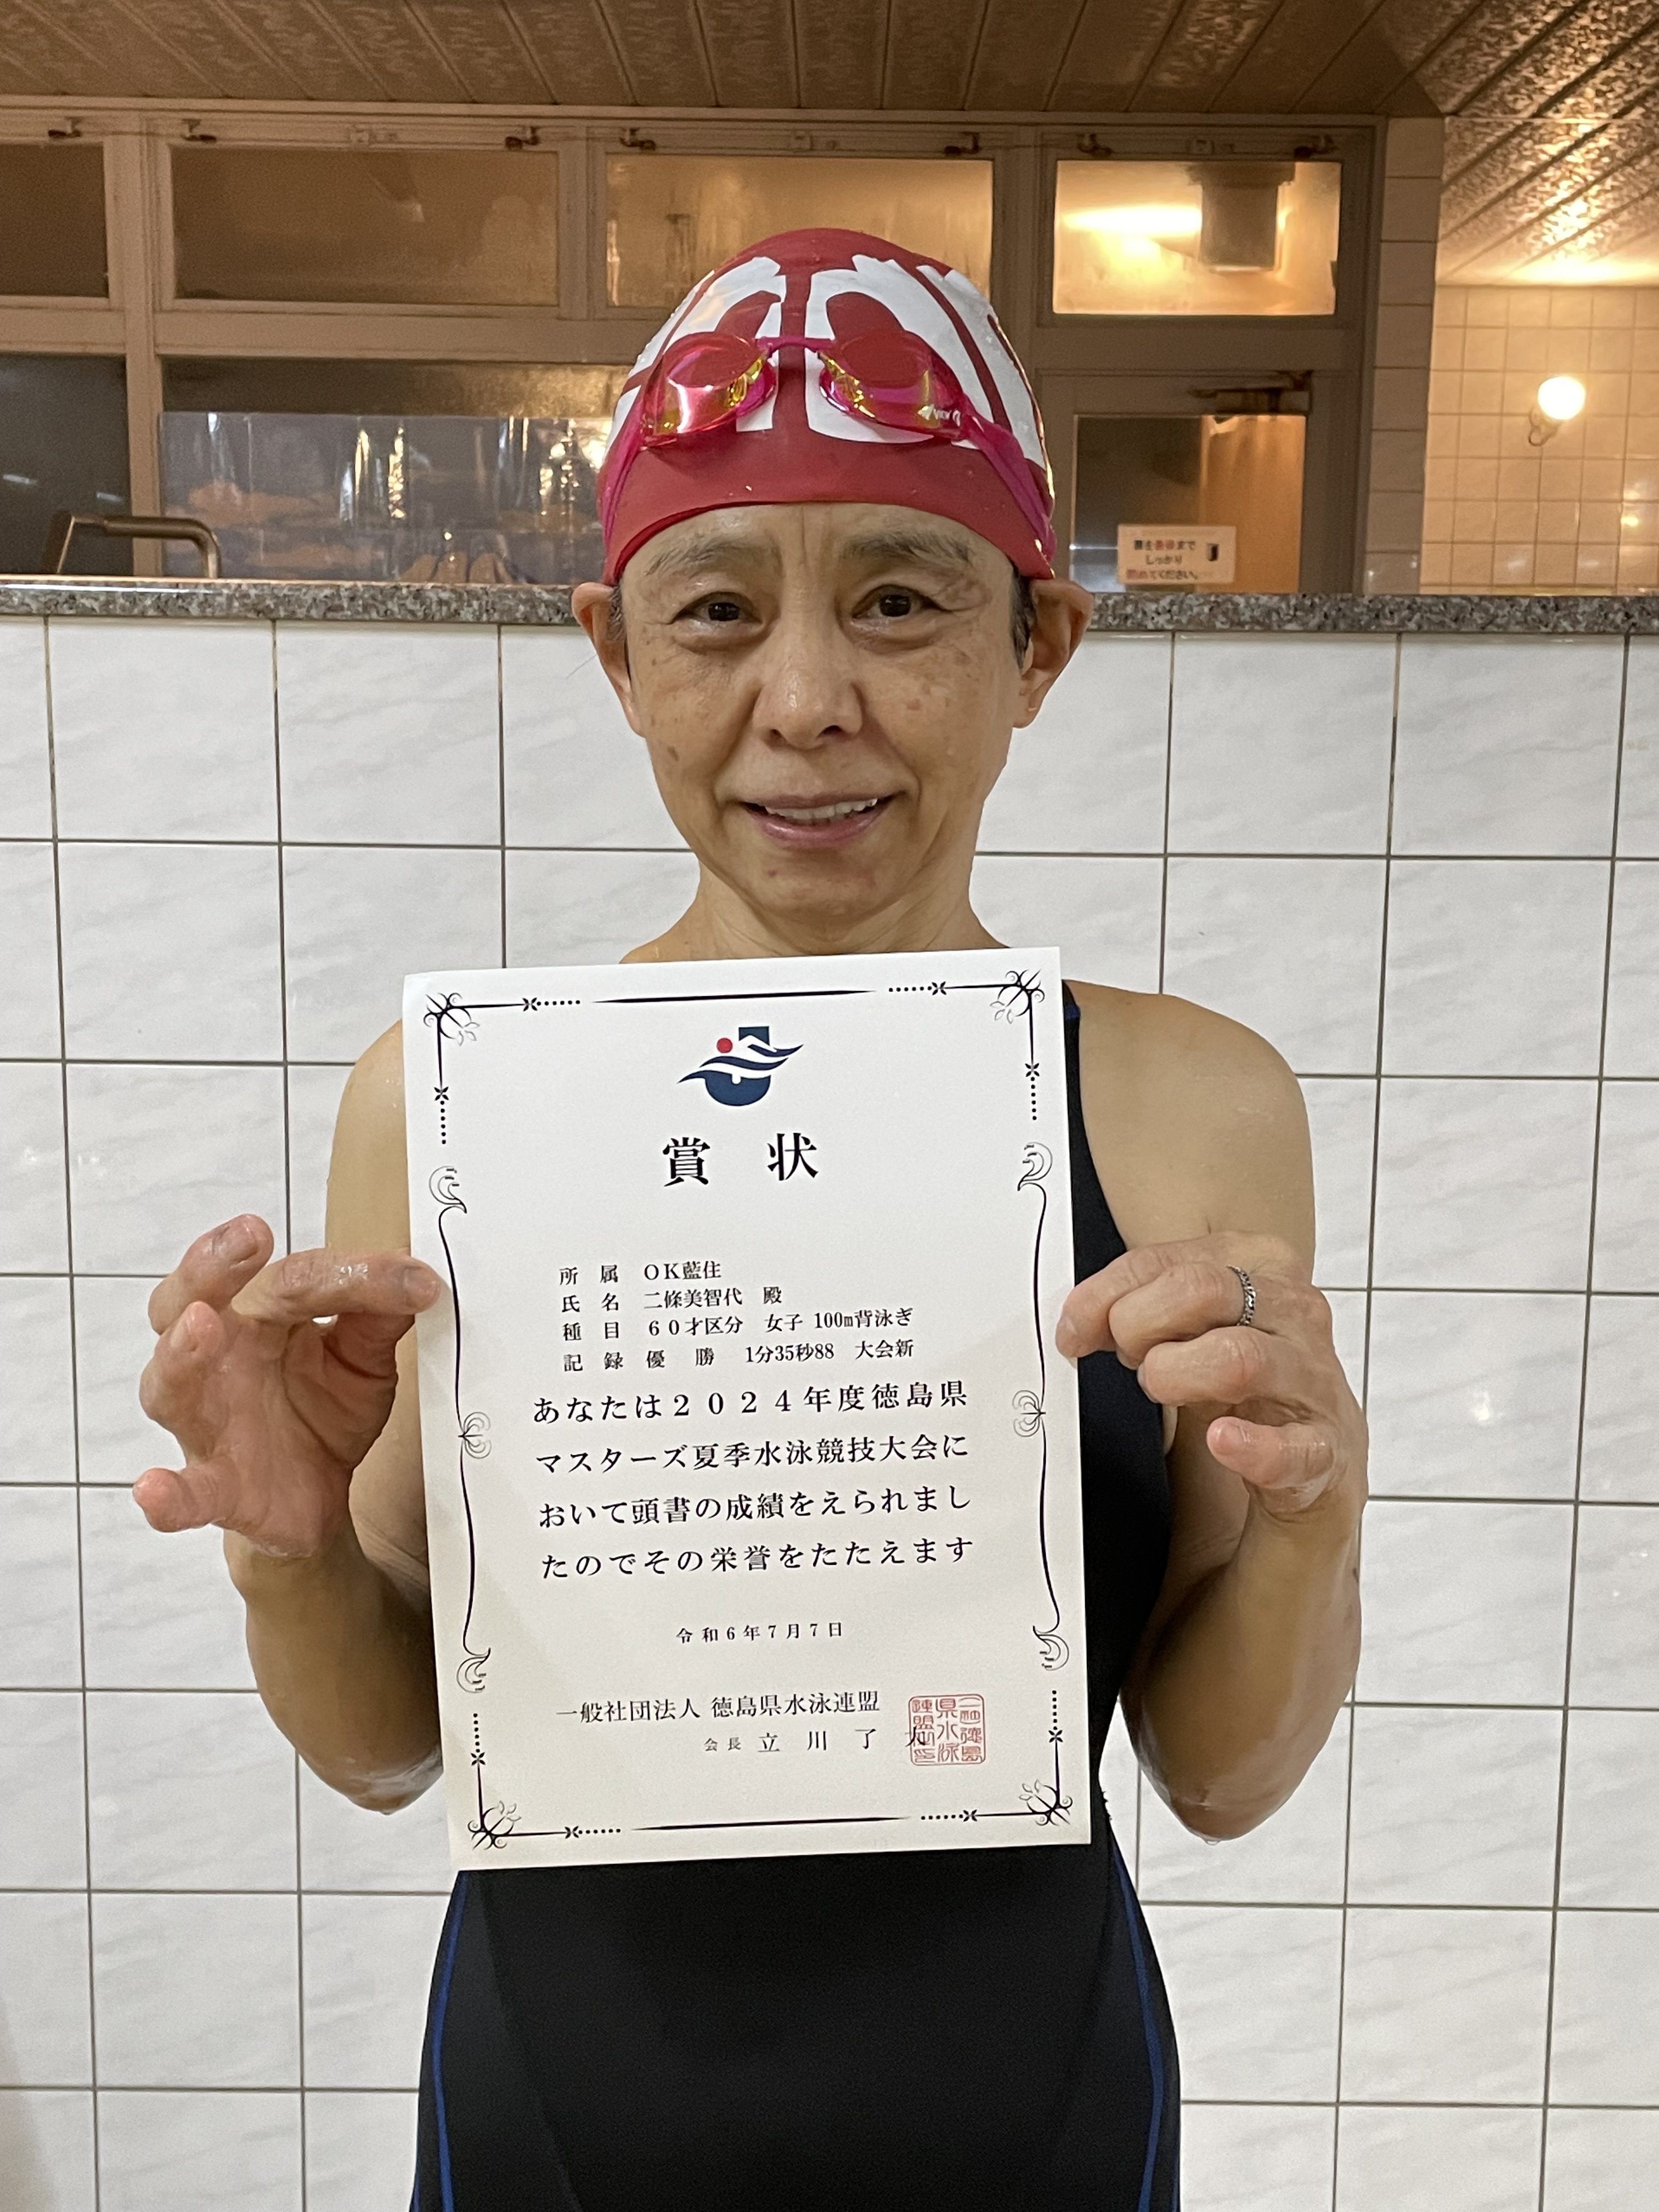 VIEW
扉を最後まで
しっかり
閉めてください。
賞 状
所 属 OK藍住
氏 名 二條美智代 殿
種 目 60才区分 女子 100m背泳ぎ
記 録 優 勝 1分35秒88 大会新
あなたは2024年度徳島県
マスターズ夏季水泳競技大会に
おいて頭書の成績をえられまし
たのでその栄誉をたたえます
令和6年7月7日
一般社団法人 徳島県水泳連盟
会長 立 川 了 大